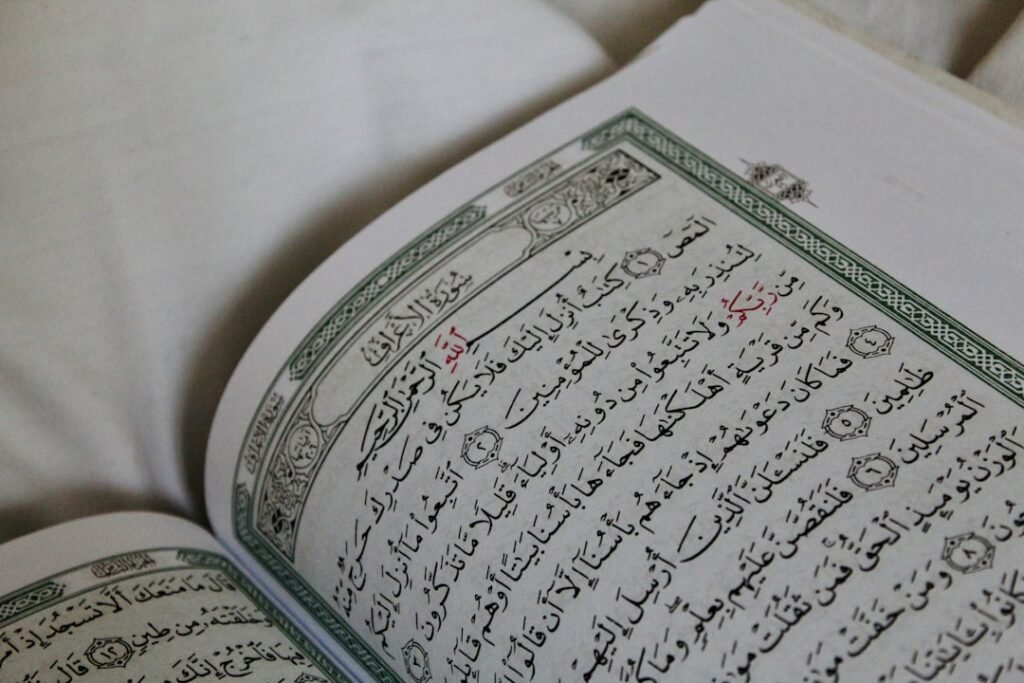 سُورَةُ الأَعْرَافِ
سُورَةُ الأَعْرَافِ
بِسْمِ ٱللَّهِ ٱلرَّحْمَٰنِ ٱلرَّحِيمِ
الٓمٓصٓ ١ كِتَٰبٌ أُنزِلَ إِلَيْكَ فَلَا يَكُن فِي صَدْرِكَ حَرَجٌ مِّنْهُ
لِتُنذِرَ بِهِۦ وَذِكْرَىٰ لِلْمُؤْمِنِينَ ٢ ٱتَّبِعُوا۟ مَآ أُنزِلَ إِلَيْكُم
مِّن رَّبِّكُمْ وَلَا تَتَّبِعُوا۟ مِن دُونِهِۦٓ أَوْلِيَآءَ قَلِيلًا مَّا تَذَكَّرُونَ ٣
وَكَم مِّن قَرْيَةٍ أَهْلَكْنَٰهَا فَجَآءَهَا بَأْسُنَا بَيَٰتًا أَوْ هُمْ قَآئِلُو
٤ فَمَا كَانَ دَعْوَىٰهُمْ إِذْ جَآءَهُم بَأْسُنَآ إِلَّآ أَن قَالُوٓا۟
ظَٰلِمِينَ ٥ فَلَنَسْـَٔلَنَّ ٱلَّذِينَ أُرْسِلَ إِلَيْهِمْ
ٱلْمُرْسَلِينَ ٦ فَلَنَقُصَّنَّ عَلَيْهِم بِعِلْمٍ وَمَا كُ
وَٱلْوَزْنُ يَوْمَئِذٍ ٱلْحَقُّ فَمَن ثَقُلَتْ مَوَ
ونَ ٨ وَمَنْ خَفَّتْ مَوَ
كَانُوا۟ بِـَٔايَٰتِنَا
قَالَ مَا مَنَعَكَ أَلَّا تَسْجُدَ إِذْ أَمَ
وَخَلَقْتَهُۥ مِن طِينٍ ١٢ قَالَ
فِيهَا فَٱخْرُجْ إِنَّكَ